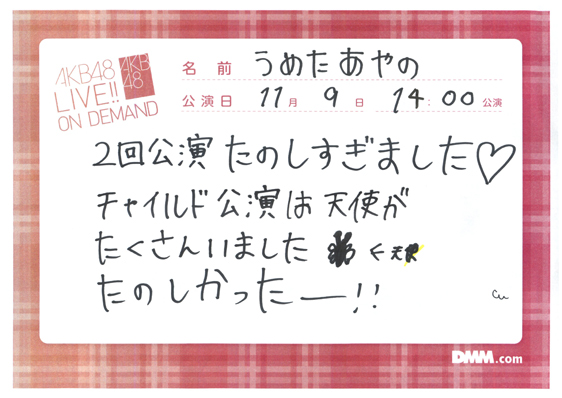 AKB48
LIVE!!
ON DEMAND
AKB
48
名前 うめたあやの
公演日 11月 9日 14:00公演
2回公演 たのしすぎました♡
チャイルド公演は天使が
たくさんいました ←天使
たのしかったー!!
DMM.com